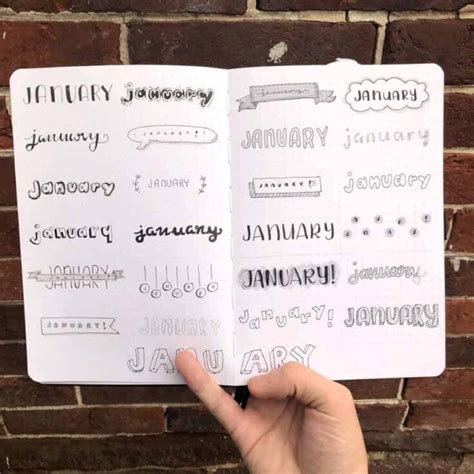 JANUARY january
january JANUARY!
January JANUARY
january january
JANUARY JANUARY
JANUARY! JANUARY
january JANUARY
JANUARY january
JANUARY! January
JANUARY JANUARY
JANUARY! january
January! JANUARY
JANU ARY